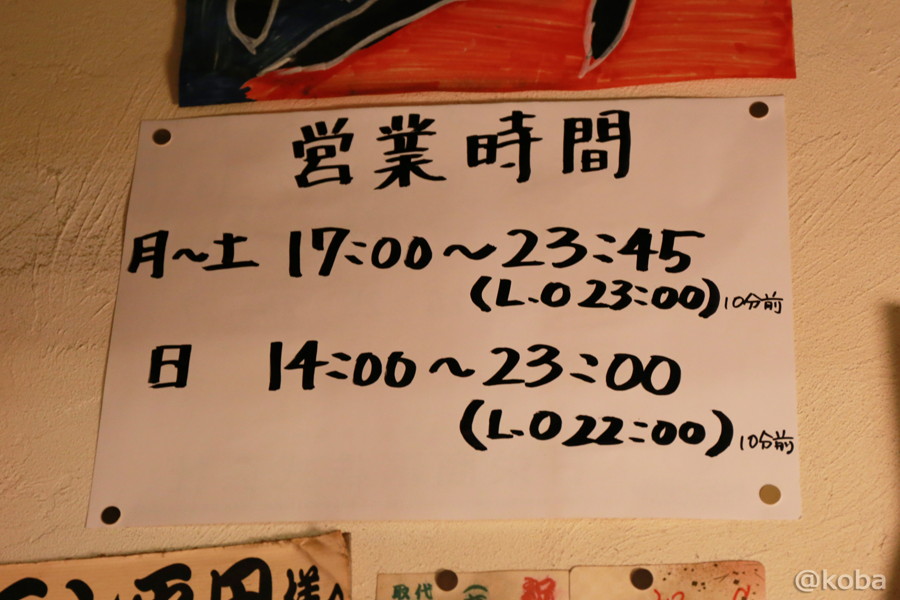 営業時間
月〜土 17:00〜23:45
(L.O 23:00)10分前
日 14:00〜23:00
(L.O 22:00)10分前
取代
祝
@koba